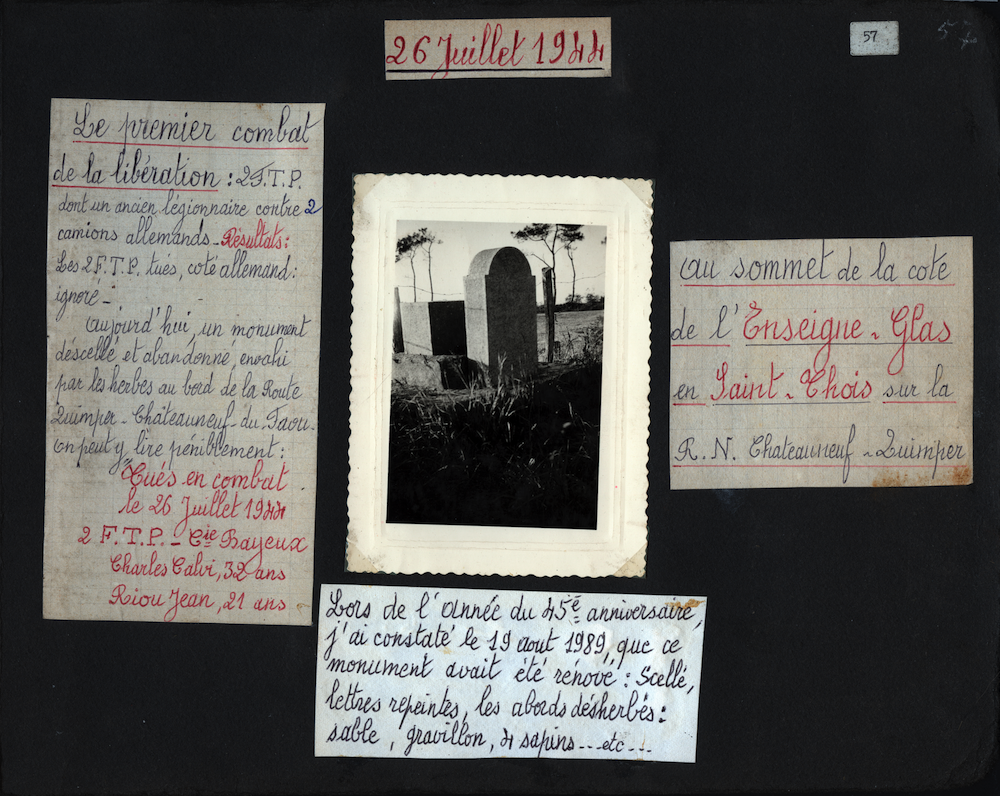 26 Juillet 1944
57
57
Le premier combat
de la libération : 2 F.T.P.
dont un ancien légionnaire contre 2
camions allemands - Résultats :
Les 2 F.T.P. tués, coté allemand :
ignoré -
Aujourd'hui, un monument
déscellé et abandonné, envahi
par les herbes au bord de la Route
Quimper - Chateauneuf - du - Faou.
On peut y lire péniblement :
Tués en combat
le 26 Juillet 1944
2 F.T.P. - Cie Bayeux
Charles Calvi, 32 ans
Riou Jean, 21 ans
au sommet de la cote
de l'Enseigne - Glas
en Saint - Thois sur la
R.N. Chateauneuf - Quimper
Lors de l'année du 45e anniversaire,
j'ai constaté le 19 aout 1989, que ce
monument avait été rénové : Scellé,
lettres repeintes, les abords désherbés :
sable, gravillon, 4 sapins --- etc ---